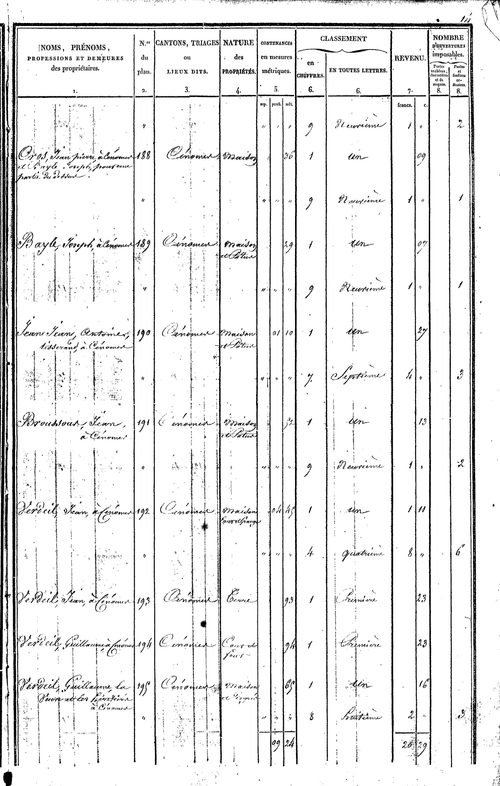 NOMS, PRÉNOMS,
PROFESSIONS ET DEMEURES
des propriétaires.
N.os
du
plan.
CANTONS, TRIAGES
ou
LIEUX DITS.
NATURE
des
PROPRIÉTÉS.
CONTENANCES
en mesures
métriques.
CLASSEMENT
en
CHIFFRES.
EN TOUTES LETTRES.
REVENU.
NOMBRE
D'OUVERTURES
imposables.
1. 2. 3. 4. 5. 6. 6. 7. 8. 8.
francs. c.
" " " " 9 Neuvième 1 " 2
Cros, Jean pierre, à Cénomes 188 Cénomes Maison 36 1 un 09
et Bayle Joseph, pour une
partie du dessus
" " " " 9 Neuvième 1 " 1
Bayle, Joseph, à Cénomes 189 Cénomes Maison 29 1 un 07
et Patus
" " " " 9 Neuvième 1 " 1
Jean Jean, Antoine, 190 Cénomes Maison 01 10 1 un 27
tisserand, à Cénomes et Patus
" " " " 7 Septième 4 " 3
Broussous, Jean, 191 Cénomes Maison 52 1 un 13
à Cénomes et Patus
" " " " 9 Neuvième 1 " 2
Verdeil, Jean, à Cénomes 192 Cénomes Maison 04 45 1 un 1 11
" " " 4 quatrième 8 " 6
Verdeil, Jean, à Cénomes 193 Cénomes Terre 93 1 Première 23
Verdeil, Guillaume, à Cénomes 194 Cénomes Cour et 94 1 Première 23
four
Verdeil, Guillaume, la 195 Cénomes Maison 65 1 un 16
à Cénomes
" " " " 8 Huitième 2 " 3
09 24 20 29